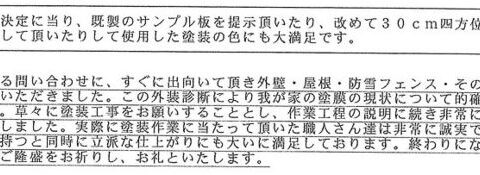 決定に当り、既製のサンプル板を提示頂いたり、改めて３０ｃｍ四方位
して頂いたりして使用した塗装の色にも大満足です。
る問い合わせに、すぐに出向いて頂き外壁・屋根・防雪フェンス・その
いただきました。この外装診断により我が家の塗膜の現状について的確
。草々に塗装工事をお願いすることとし、作業工程の説明に続き非常に
しました。実際に塗装作業に当たって頂いた職人さん達は非常に誠実で
持つと同時に立派な仕上がりにも大いに満足しております。終わりにな
ご隆盛をお祈りし、お礼といたします。